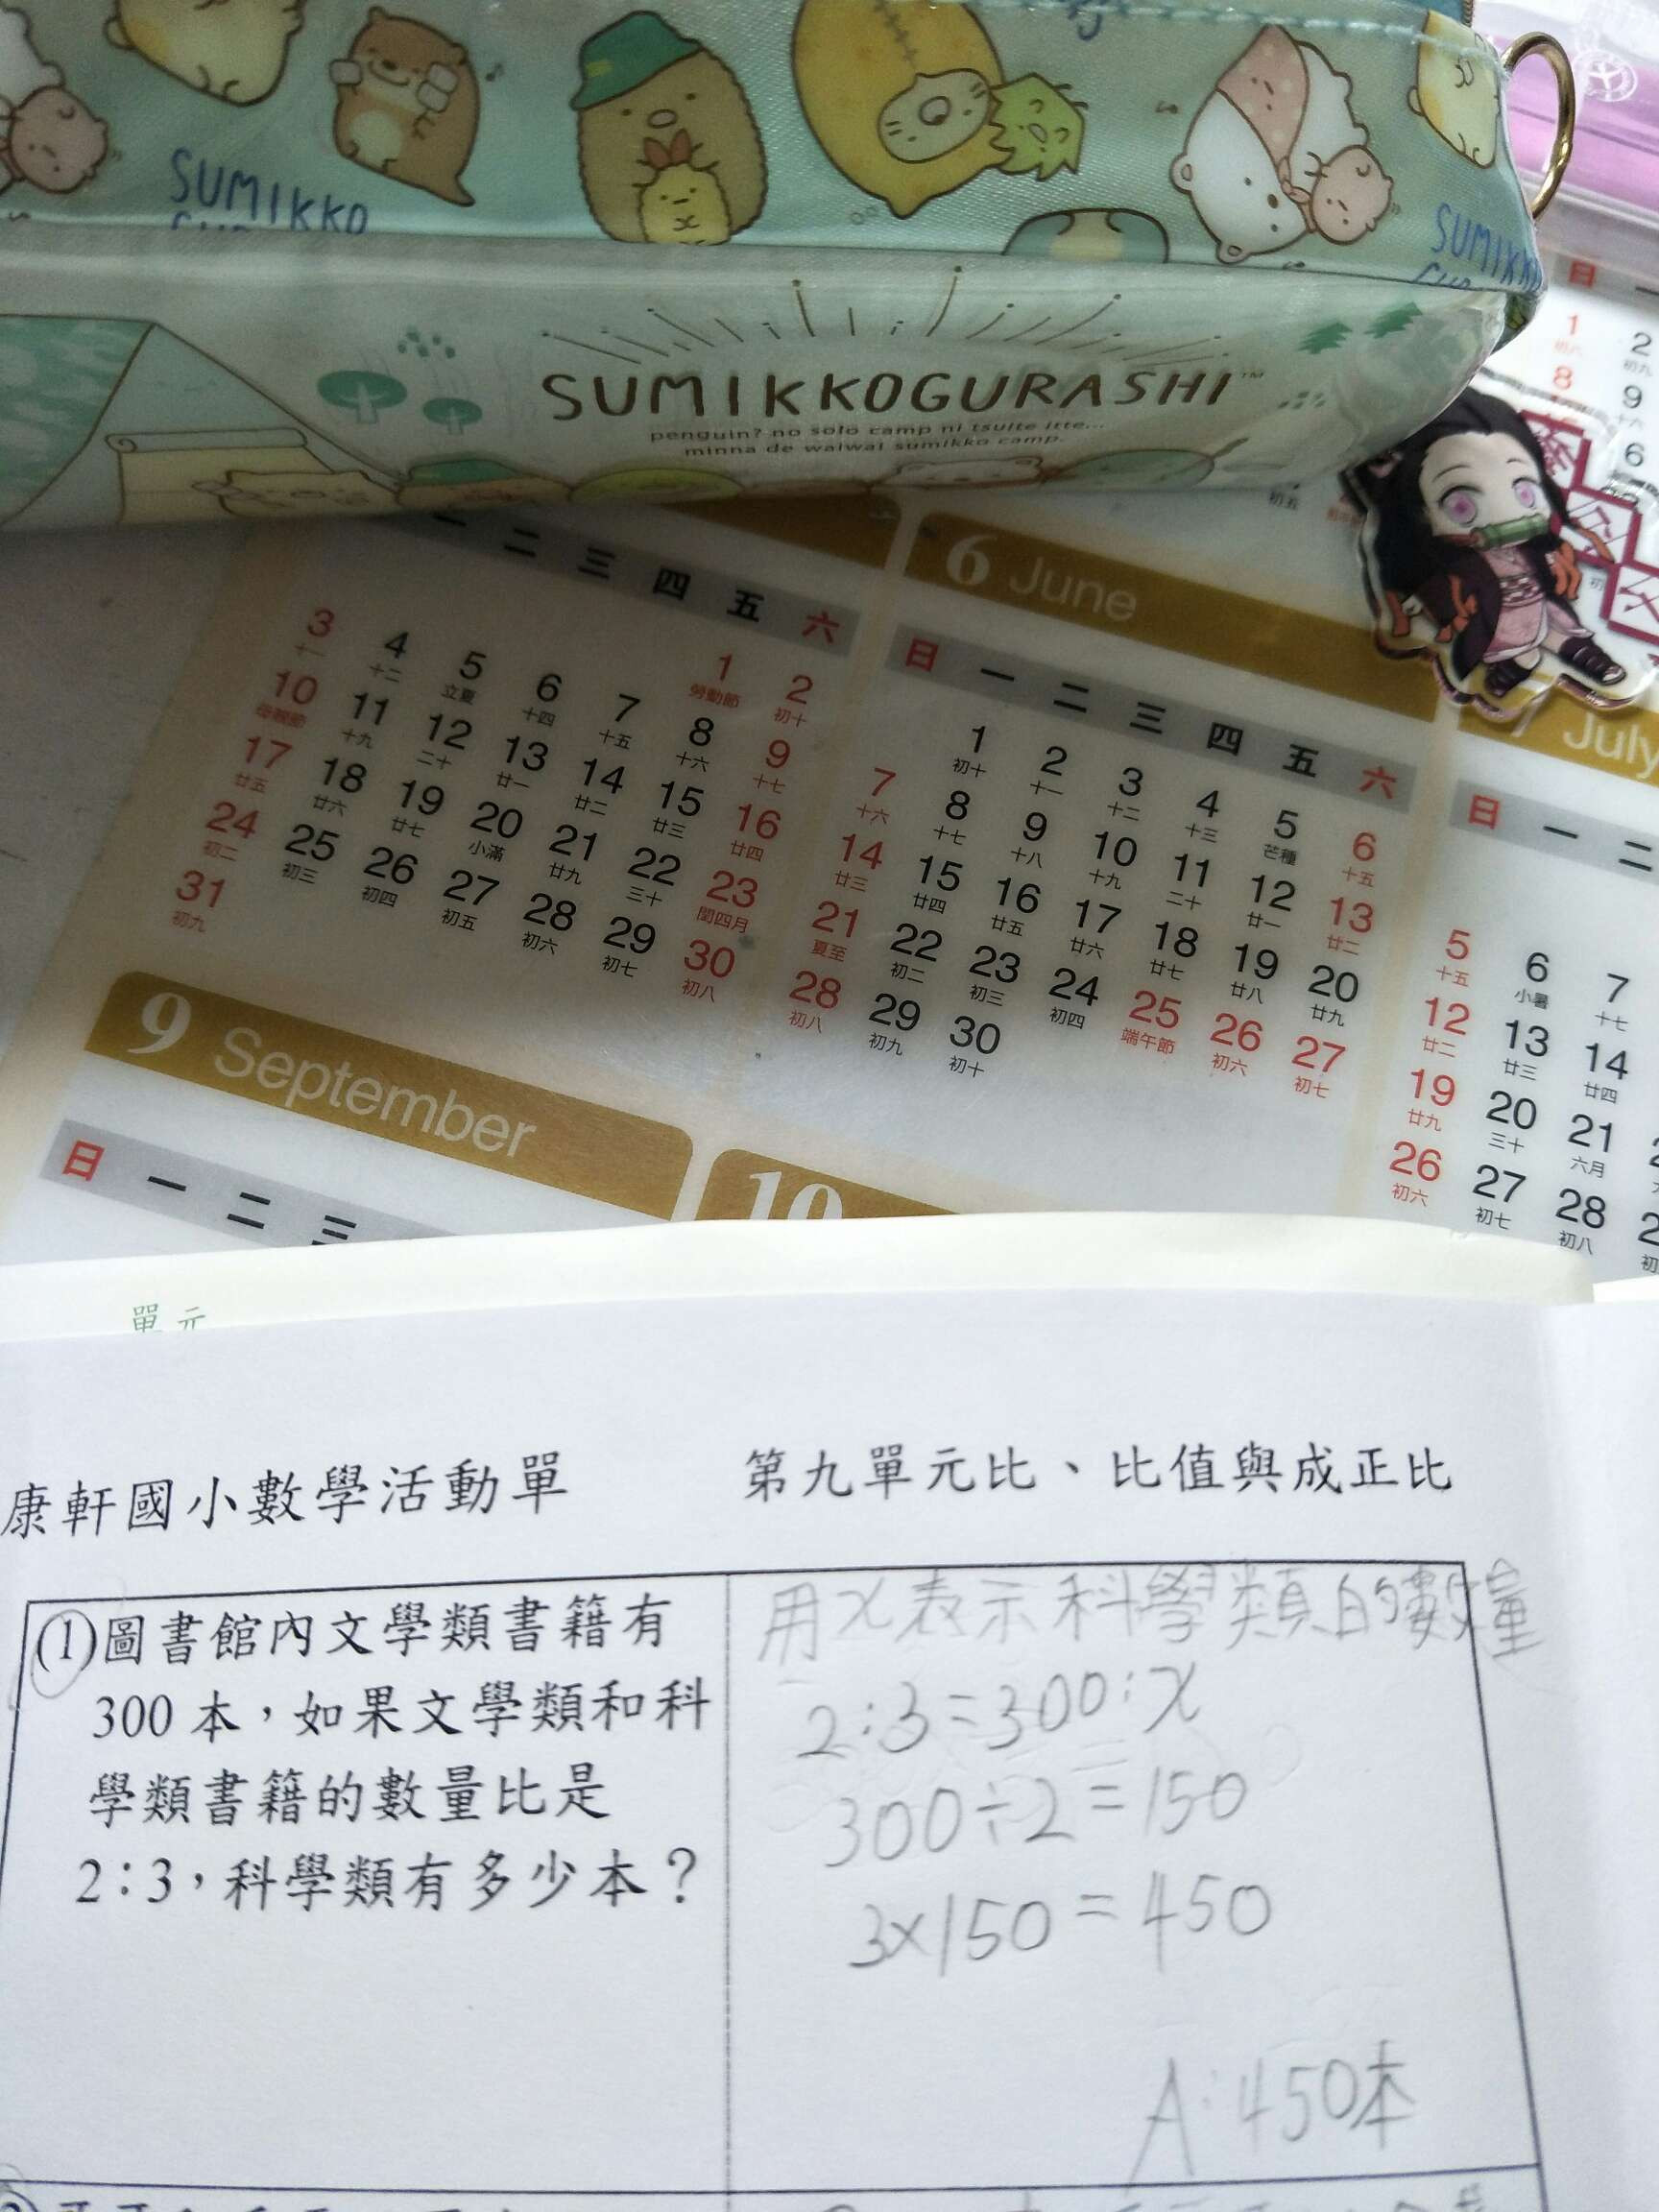 SUMIKKO
SUMIKK
SUMIKKOGURASHI™
penguin? no solo camp ni tsuite itte...
minna de waiwai sumikko camp.
一 二 三 四 五 六
1 2
勞動節 初十
3 4 5 6 7 8 9
十一 十二 立夏 十四 十五 十六 十七
10 11 12 13 14 15 16
母親節 十九 二十 廿一 廿二 廿三 廿四
17 18 19 20 21 22 23
廿五 廿六 廿七 小滿 廿九 三十 閏四月
24 25 26 27 28 29 30
初二 初三 初四 初五 初六 初七 初八
31
初九
6 June
日 一 二 三 四 五 六
1 2 3 4 5 6
初十 十一 十二 十三 芒種 十五
7 8 9 10 11 12 13
十六 十七 十八 十九 二十 廿一 廿二
14 15 16 17 18 19 20
廿三 廿四 廿五 廿六 廿七 廿八 廿九
21 22 23 24 25 26 27
夏至 初二 初三 初四 端午節 初六 初七
28 29 30
初八 初九 初十
July
日 一 二
5 6 7
十五 小暑 十七
12 13 14
廿二 廿三 廿四
19 20 21
廿九 三十 六月
26 27 28
初六 初七 初八
日
1 2
初八 初九
8 9
6
初五
9 September
日 一 二 三
10
單元
康軒國小數學活動單 第九單元比、比值與成正比
(1)圖書館內文學類書籍有
300本，如果文學類和科
學類書籍的數量比是
2：3，科學類有多少本？
用x表示科學類的數量
2:3=300:x
300÷2=150
3×150=450
A:450本